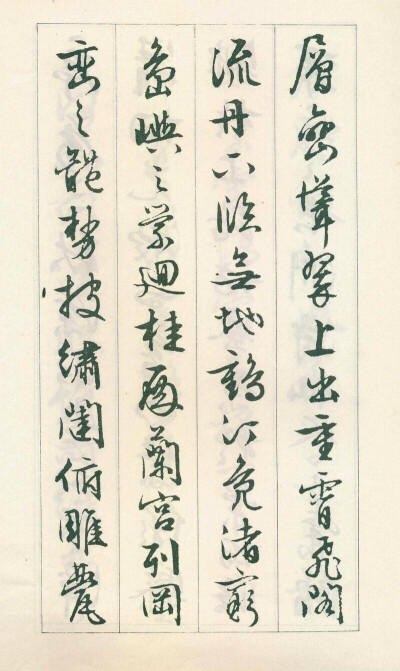 層巒聳翠上出重霄飛閣
流丹下臨無地鶴汀鳧渚窮
島嶼之縈迴桂殿蘭宮列岡
巒之體勢披繡闥俯雕甍